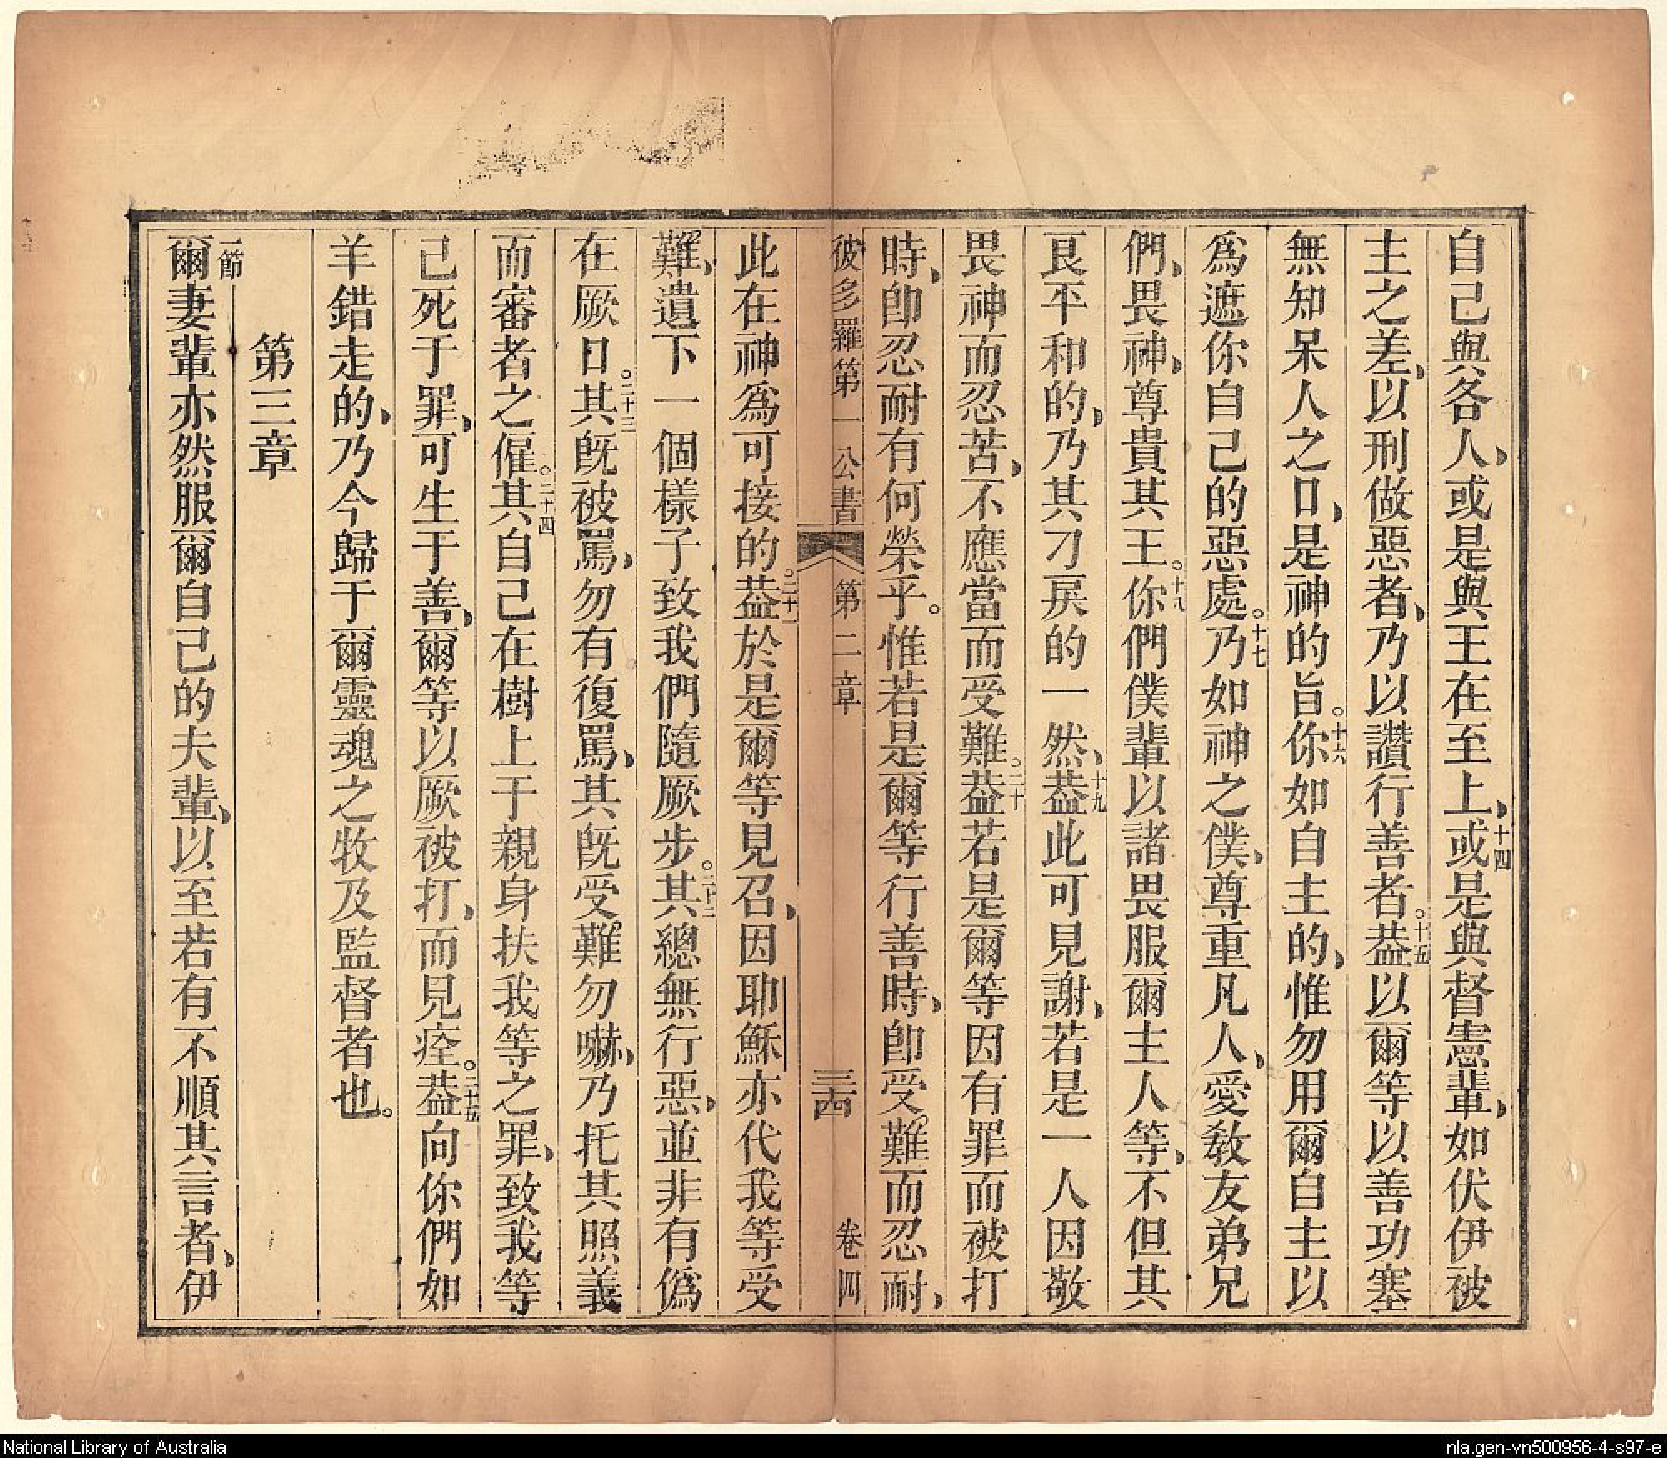 自己與各人、或是與王在至上、十四或是與督憲輩、如伏伊被
主之差、以刑做惡者、乃以讚行善者。十五葢以爾等以善功塞
無知呆人之口、是神的旨。十六你如自主的、惟勿用爾自主以
為遮你自己的惡處。十七乃如神之僕、尊重凡人、愛教友弟兄
們、畏神、尊貴其王。十八你們僕輩以諸畏服爾主人等、不但其
艮平和的、乃其刁戾的一然、十九葢此可見謝、若是一人因敬
畏神而忍苦、不應當而受難。二十葢若是爾等因有罪而被打
時、卽忍耐有何榮乎。惟若是爾等行善時、卽受難而忍耐、
彼多羅第一公書 第二章 三十四 卷四
此在神為可接的。二十一葢於是爾等見召、因耶穌亦代我等受
難、遺下一個樣子致我們隨厥步。二十二其總無行惡、並非有偽
在厥口。二十三其旣被罵、勿有復罵、其旣受難勿嚇、乃托其照義
而審者之僱。二十四其自己在樹上于親身扶我等之罪、致我等
已死于罪、可生于善、爾等以厥被打、而見痊。二十五葢向你們如
羊錯走的、乃今歸于爾靈魂之牧及監督者也。
第三章
一節爾妻輩亦然服爾自己的夫輩、以至若有不順其言者、伊
National Library of Australia
nla.gen-vn500956-4-s97-e